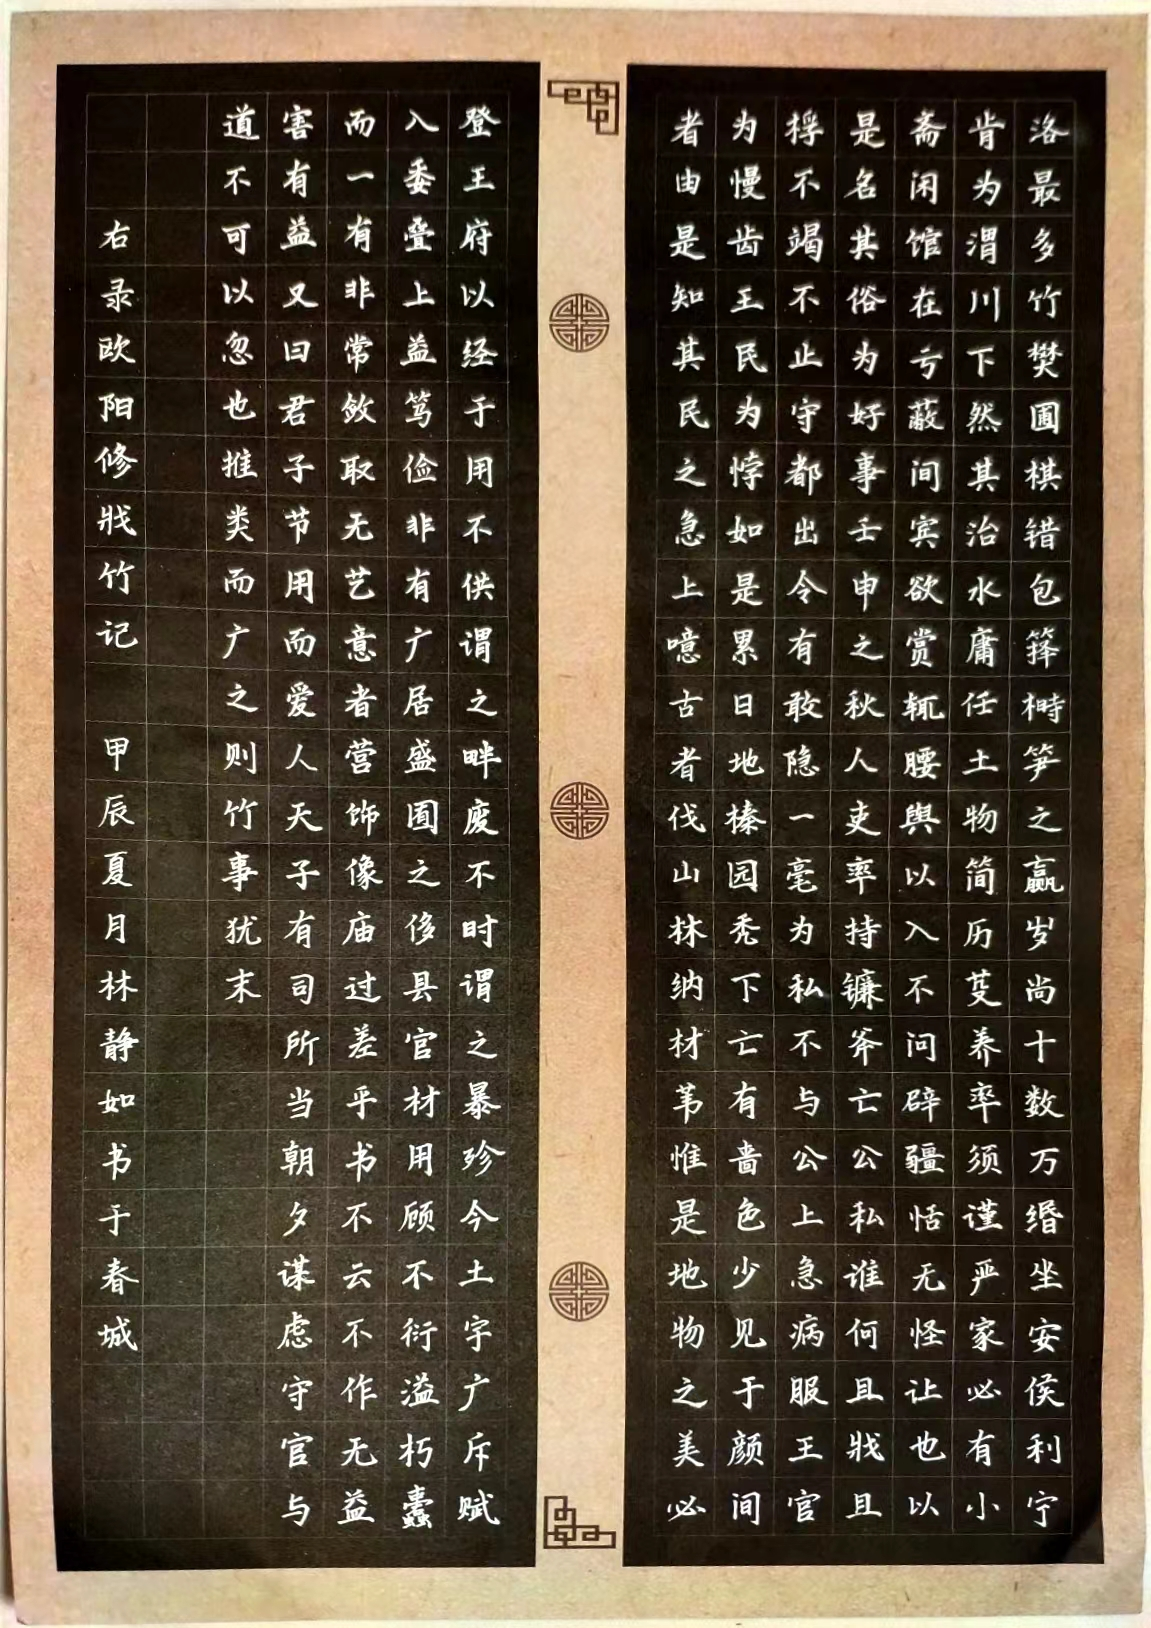 洛最多竹樊圃棋错包箨榯笋之赢岁尚十数万缗坐安侯利宁
肯为渭川下然其治水庸任土物简历芟养率须谨严家必有小
斋闲馆在亏蔽间宾欲赏辄腰舆以入不问辟疆恬无怪让也以
是名其俗为好事壬申之秋人吏率持镰斧亡公私谁何且戕且
桴不竭不止守都出令有敢隐一毫为私不与公上急病服王官
为慢齿王民为悖如是累日地榛园秃下亡有啬色少见于颜间
者由是知其民之急上噫古者伐山林纳材苇惟是地物之美必
登王府以经于用不供谓之畔废不时谓之暴殄今土宇广斥赋
入委叠上益笃俭非有广居盛囿之侈县官材用顾不衍溢朽蠹
而一有非常敛取无艺意者营饰像庙过差乎书不云不作无益
害有益又曰君子节用而爱人天子有司所当朝夕谋虑守官与
道不可以忽也推类而广之则竹事犹末
右录欧阳修戕竹记 甲辰夏月林静如书于春城